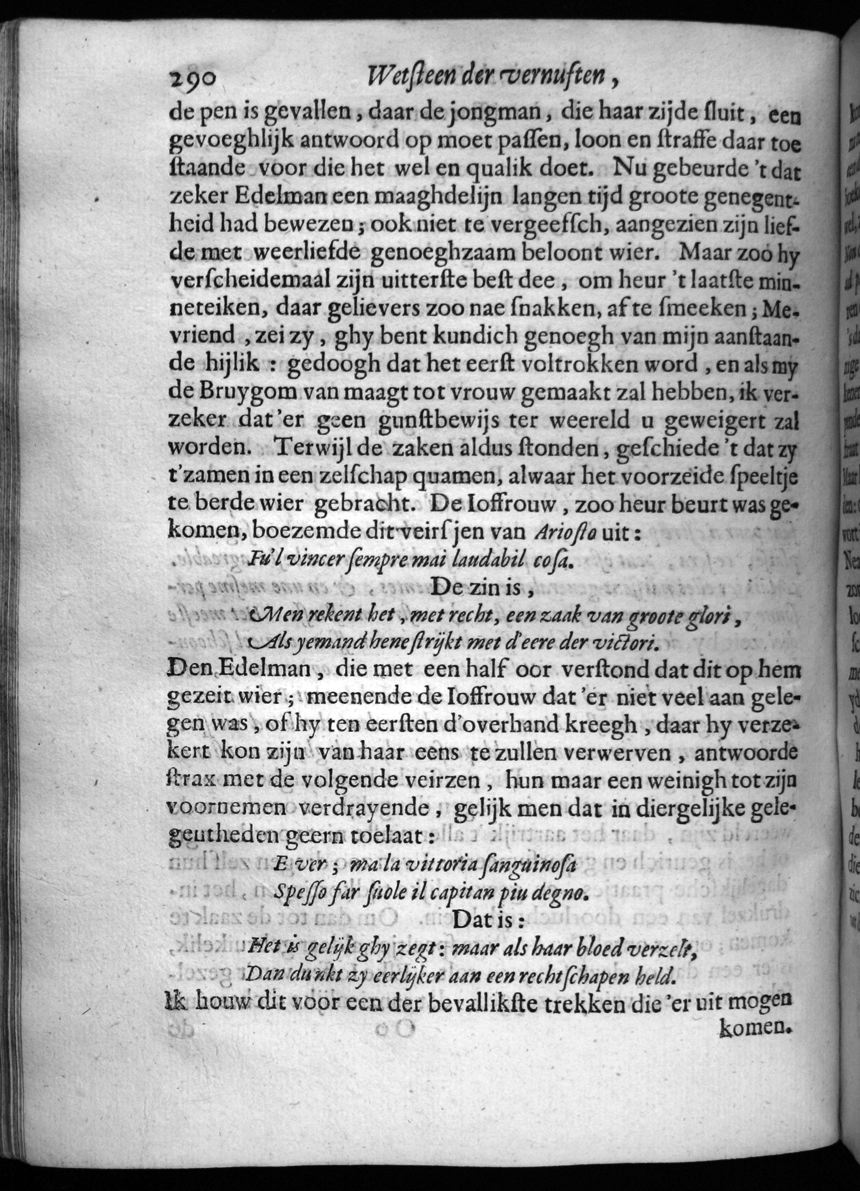 290 Wetſteen der vernuften,
de pen is gevallen, daar de jongman, die haar zijde ſluit, een
gevoeghlijk antwoord op moet paſſen, loon en ſtraffe daar toe
ſtaande voor die het wel en qualik doet. Nu gebeurde 't dat
zeker Edelman een maaghdelijn langen tijd groote genegent-
heid had bewezen; ook niet te vergeefſch, aangezien zijn lief-
de met weerliefde genoeghzaam beloont wier. Maar zoo hy
verſcheidemaal zijn uitterſte beſt dee, om heur 't laatſte min-
neteiken, daar gelievers zoo nae ſnakken, af te ſmeeken; Me-
vriend, zei zy, ghy bent kundich genoegh van mijn aanſtaan-
de hijlik: gedoogh dat het eerſt voltrokken word, en als my
de Bruygom van maagt tot vrouw gemaakt zal hebben, ik ver-
zeker dat'er geen gunſtbewijs ter weereld u geweigert zal
worden. Terwijl de zaken aldus ſtonden, geſchiede 't dat zy
t'zamen in een zelſchap quamen, alwaar het voorzeide ſpeeltje
te berde wier gebracht. De Ioffrouw, zoo heur beurt was ge-
komen, boezemde dit veirſjen van Arioſto uit:
Fu'l vincer ſempre mai laudabil coſa.
De zin is,
Men rekent het, met recht, een zaak van groote glori,
Als yemand heneſtrijkt met d'eere der victori.
Den Edelman, die met een half oor verſtond dat dit op hem
gezeit wier; meenende de Ioffrouw dat'er niet veel aan gele-
gen was, of hy ten eerſten d'overhand kreegh, daar hy verze-
kert kon zijn van haar eens te zullen verwerven, antwoorde
ſtrax met de volgende veirzen, hun maar een weinigh tot zijn
voornemen verdrayende, gelijk men dat in diergelijke gele-
geutheden geern toelaat:
E ver; ma la vittoria ſanguinoſa
Speſſo far ſuole il capitan piu degno.
Dat is:
Het is gelijk ghy zegt: maar als haar bloed verzelt,
Dan dunkt zy eerlijker aan een rechtſchapen held.
Ik houw dit voor een der bevallikſte trekken die 'er uit mogen
komen.